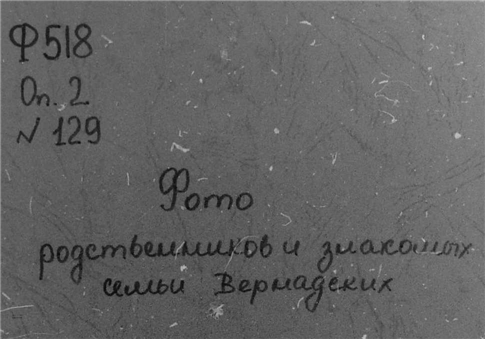 Ф518
Оп. 2
N 129
Фото
родственников и знакомых
семьи Вернадских